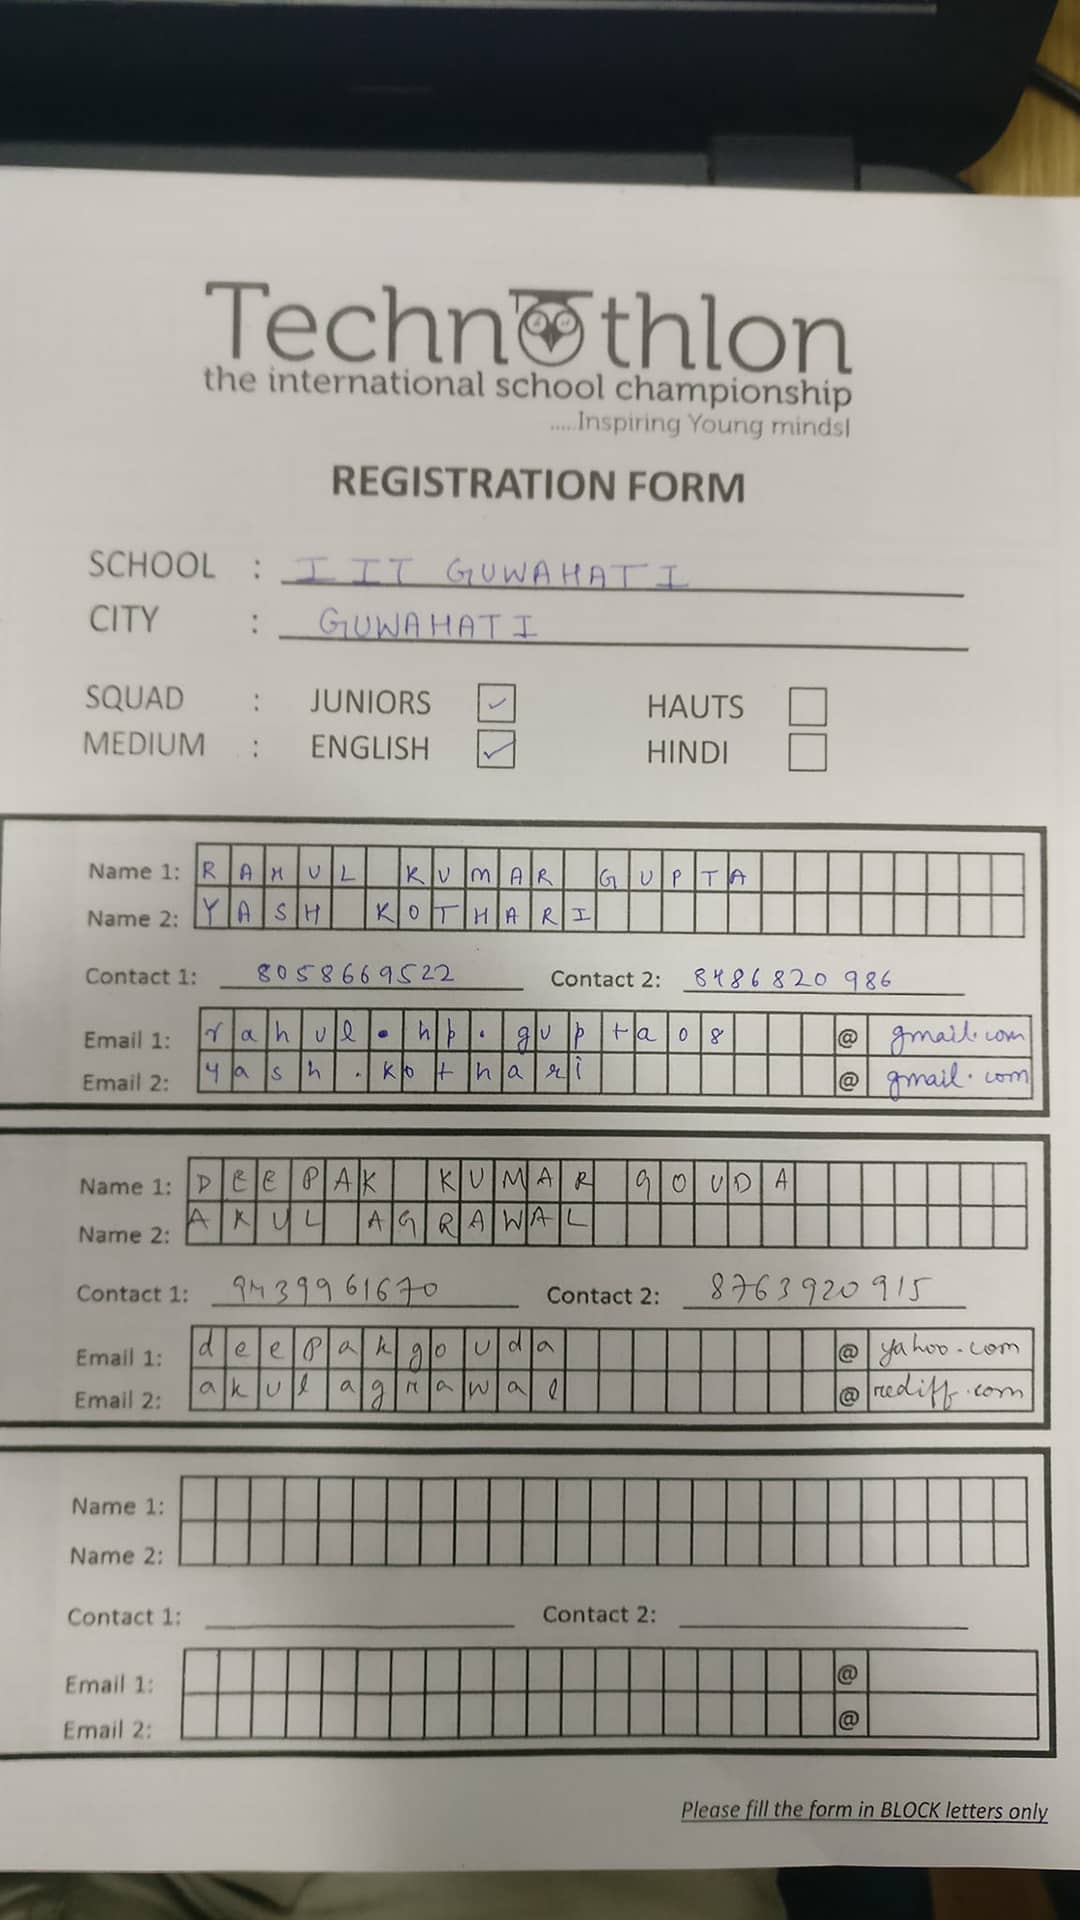 Technothlon
the international school championship
.....Inspiring Young minds!
REGISTRATION FORM
SCHOOL : IIT GUWAHATI
CITY : GUWAHATI
SQUAD : JUNIORS ✓ HAUTS
MEDIUM : ENGLISH ✓ HINDI
Name 1: RAHUL KUMAR GUPTA
Name 2: YASH KOTHARI
Contact 1: 8058669522 Contact 2: 8486820986
Email 1: rahul.hp.gupta08 @ gmail.com
Email 2: yash.kothari @ gmail.com
Name 1: DEEPAK KUMAR GOUDA
Name 2: AKUL AGRAWAL
Contact 1: 9439961670 Contact 2: 8763920915
Email 1: deepakgouda @ yahoo.com
Email 2: akulagrawal @ rediff.com
Name 1:
Name 2:
Contact 1: Contact 2:
Email 1: @
Email 2: @
Please fill the form in BLOCK letters only